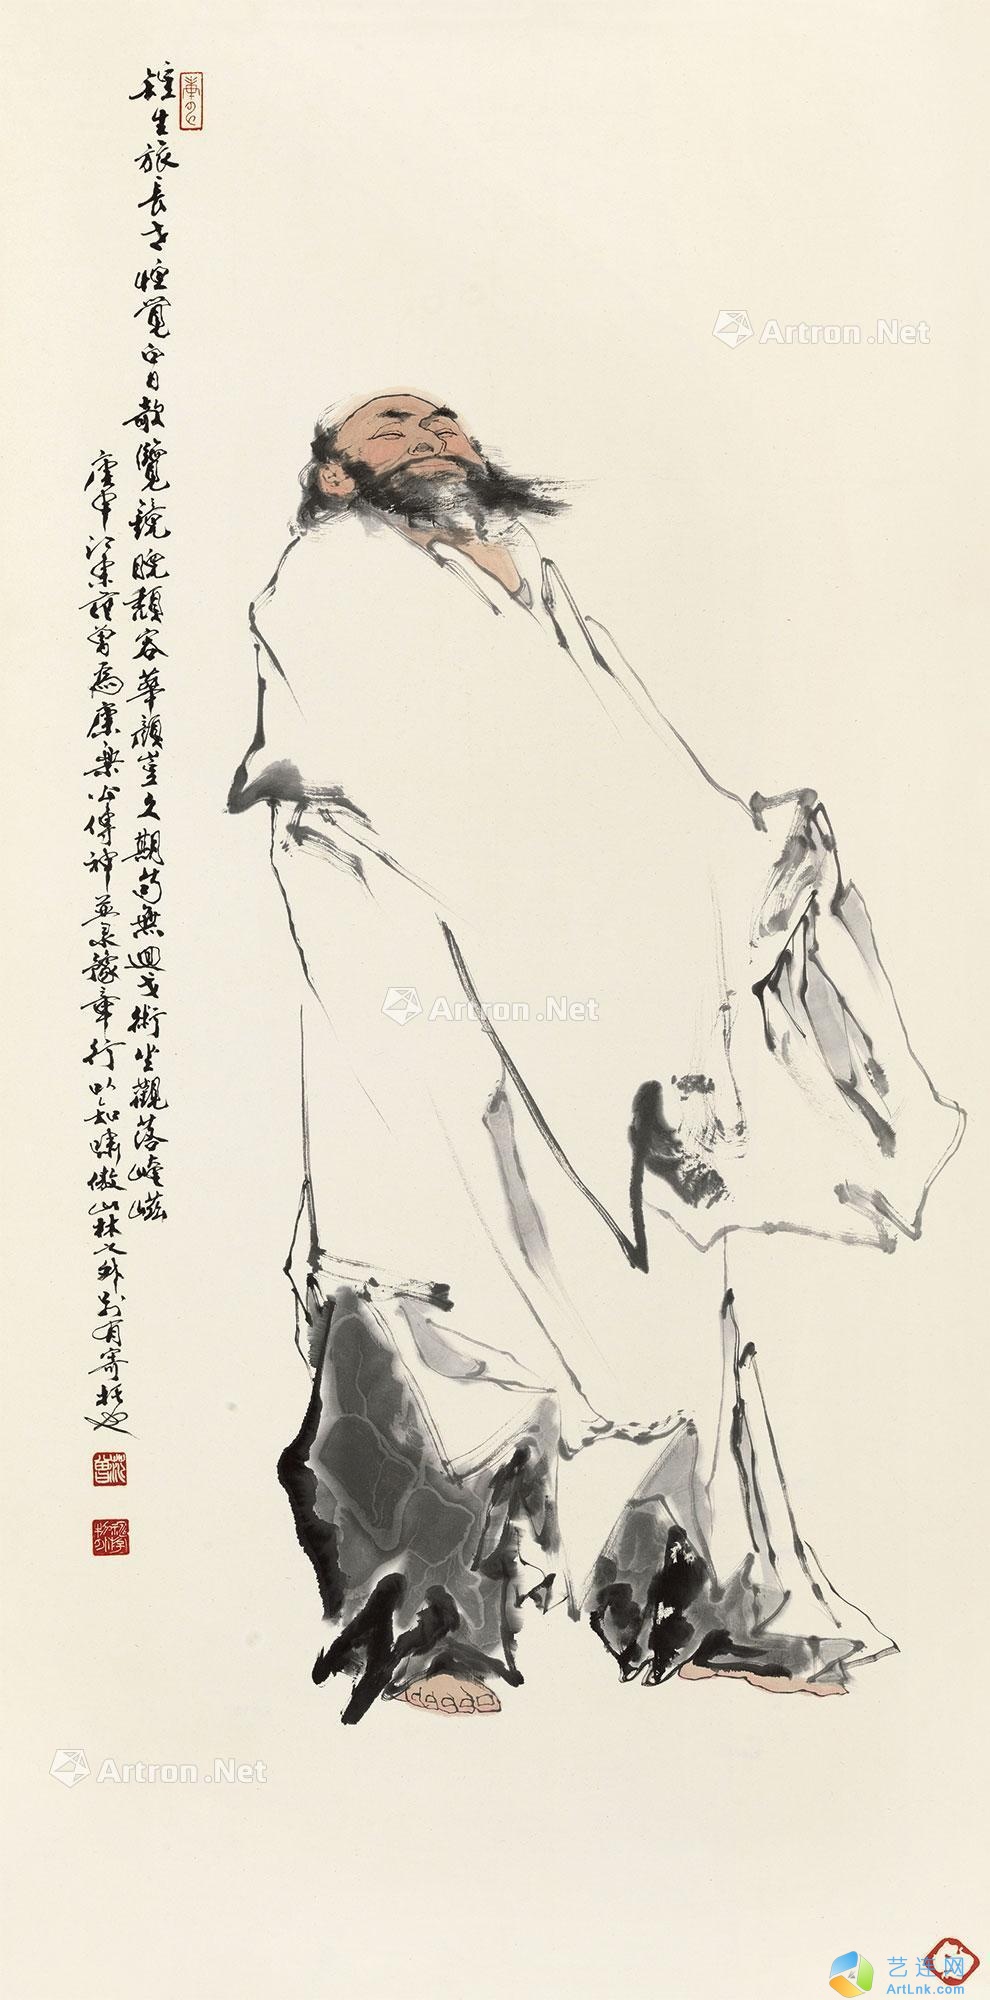 短生旅長世恒覺白日欹覽鏡睨頹容華顏豈久期苟無迴戈術坐觀落崦嵫
庚申江東范曾為康樂公傳神並录豫章行以知嘯傲山林之外別有寄托也
范曾
Artron.Net
Artron.Net
Artron.Net
艺连网
ArtLnk.com